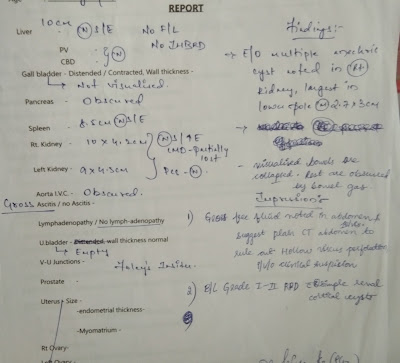 REPORT
Liver : 10cm (N) S/E No F/L
No IHBRD
PV
CBD : (N)
Gall bladder - Distended / Contracted, Wall thickness -
Not visualised.
Pancreas - Obscured
Spleen - 8.5cm (N) S/E
Rt. Kidney - 10 x 4.2cm (N) S/
CMD - partially lost
Left Kidney - 9 x 4.3cm PCS - (N)
Aorta I.V.C. - Obscured.
GROSS Ascitis / no Ascitis -
Lymphadenopathy / No lymph-adenopathy
U.bladder - Distended, wall thickness normal
Empty
V-U Junctions - Foley's Inside.
Prostate -
Uterus - Size -
-endometrial thickness-
-Myomatrium -
Rt Ovary-
Left Ovary-
Findings:-
→ E/O multiple
cyst noted in (Rt)
kidney, largest in
lower pole (N) 2.7 x 3cm
→ visualised bowels are
collapsed. Rest are obscured
by bowel gas
Impression's
1) Gross free fluid noted in abdomen &
suggest plain CT abdomen to
rule out Hollow viscus perforation
clinical suspicion
2) B/L Grade I-II RPD simple renal
cortical cysts